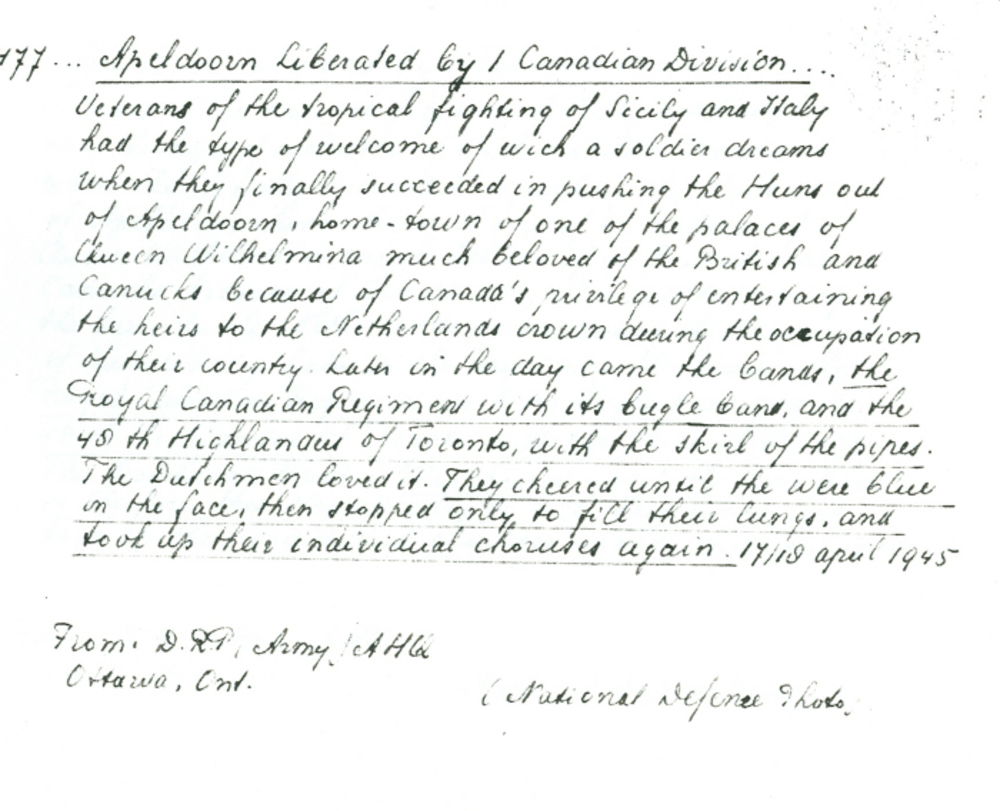 177... Apeldoorn Liberated by 1 Canadian Division....
Veterans of the tropical fighting of Sicily and Italy
had the type of welcome of wich a soldier dreams
when they finally succeeded in pushing the Huns out
of Apeldoorn, home-town of one of the palaces of
Queen Wilhelmina much beloved of the British and
Canucks because of Canada's privilege of entertaining
the heirs to the Netherlands crown during the occupation
of their country. Later in the day came the bands, the
Royal Canadian Regiment with its bugle band, and the
48 th Highlanders of Toronto, with the skirl of the pipes.
The Dutchmen loved it. They cheered until the were blue
in the face, then stopped only to fill their lungs, and
took up their individual choruses again. 17/18 april 1945
From: D.P.R. (Army) AHQ
Ottawa, Ont.
( National Defence Photo.